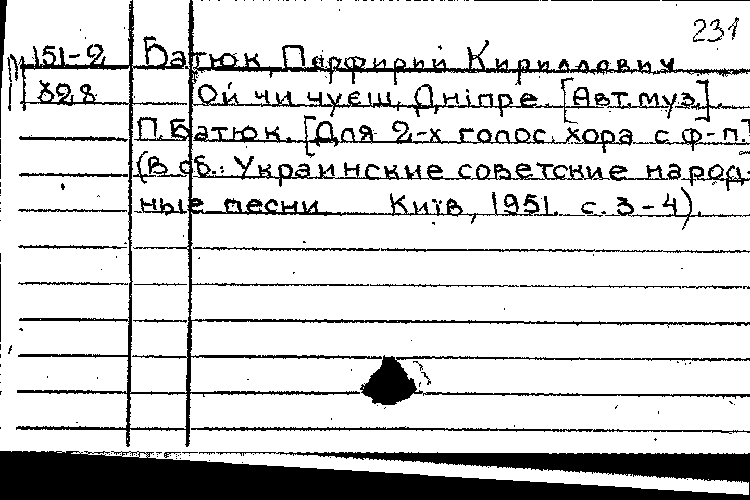 231
151-2 Батюк, Парфирий Кириллович
828 Ой чи чуєш, Дніпре. [Авт. муз.].
П. Батюк. [Для 2-х голос. хора с ф-п.]
(В сб.: Украинские советские народ-
ные песни Київ, 1951. с. 3-4).